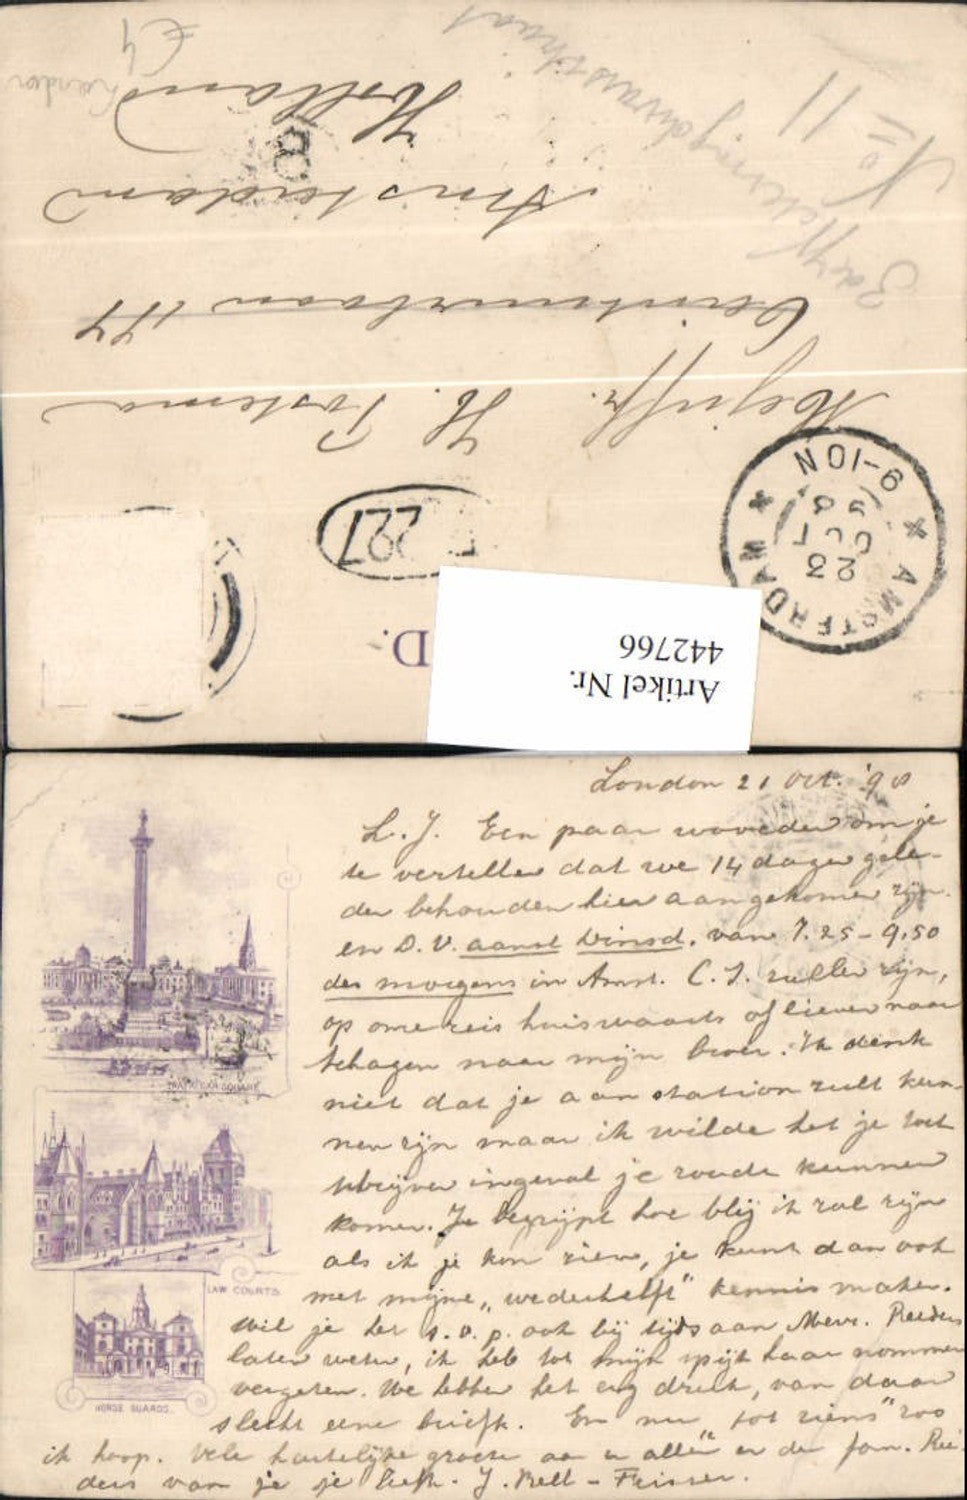 Holland
8
Amsterdam
Ceintuurbaan 144
Mejuffr. H. Postema
No 11
£4
AMSTERDAM
23
OCT
9-10N
227
D.
Artikel Nr.
442766
London 21 Oct. '98
L. J. Een paar woorden om je
te vertellen dat we 14 dagen gele-
den behouden hier aangekomen zijn
en D.V. aanst Dinsd. van 7.25-9.50
des morgens in Amst. C.S. zullen zijn,
op onze reis huiswaarts of liever naar
Schagen naar mijn broer. Ik denk
niet dat je aan station zult kun-
nen zijn maar ik wilde het je toch
schrijven ingeval je zoude kunnen
komen. Je begrijpt hoe blij ik zal zijn
als ik je kon zien, je kunt dan ook
met mijne "wederhelft" kennis maken.
Wil je het s.v.p. ook bij tijds aan Mevr. Reeders
laten weten, ik heb tot mijn spijt haar nommer
vergeten. We hebben het erg druk, van daar
slecht eene briefk. En nu "tot ziens" zoo
ik hoop. Vele hartelijke groeten aan u allen en de fam. Ree-
ders van je je liefh. J. Bell-
TRAFALGAR SQUARE
LAW COURTS.
HORSE GUARDS.